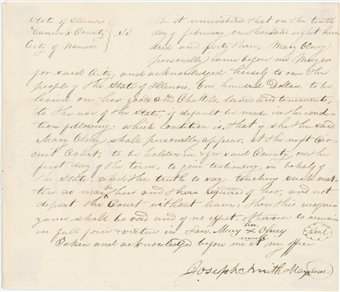 State of Illinois }
Hancock County } S.S
City of Nauvoo }
Be it remembered that on the tenth
day of february, one thousand eight hun
dred and forty three, Mary Olney
personally came before me Mayor
for said City, and acknowledged herself to owe the
people of the State of Illinois, One hundred Dollars, to be
levied on her goods and Chattels, lands and tenements,
to the use of the State, if default be made in the condi
tion following, which condition is, that if she the said
Mary Olney shall personally appear, at the next Cir
cuit Court, to be holden in & for said County, on the
first day of the term, to give testimony, in behalf of
the State, and the truth to say, touching such mat
ters as may then and there required of her, and not
depart the Court without leave, then this recogni
zance shall be void and of no effect, otherwise to remain
in full force & virtue in Law. Mary her x mark Olney Seal
Taken and acknowledged before me at my office
Joseph Smith Mayor